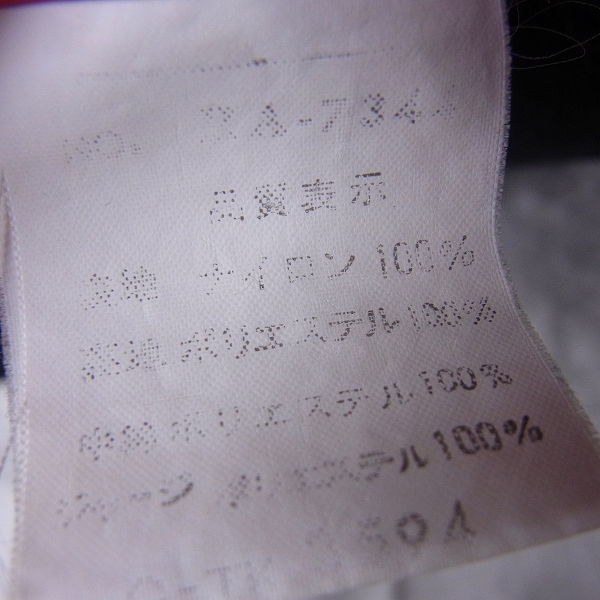 NO. RA-7344
品質表示
表地 ナイロン 100%
裏地 ポリエステル 100%
中綿 ポリエステル 100%
ジャージ ポリエステル 100%